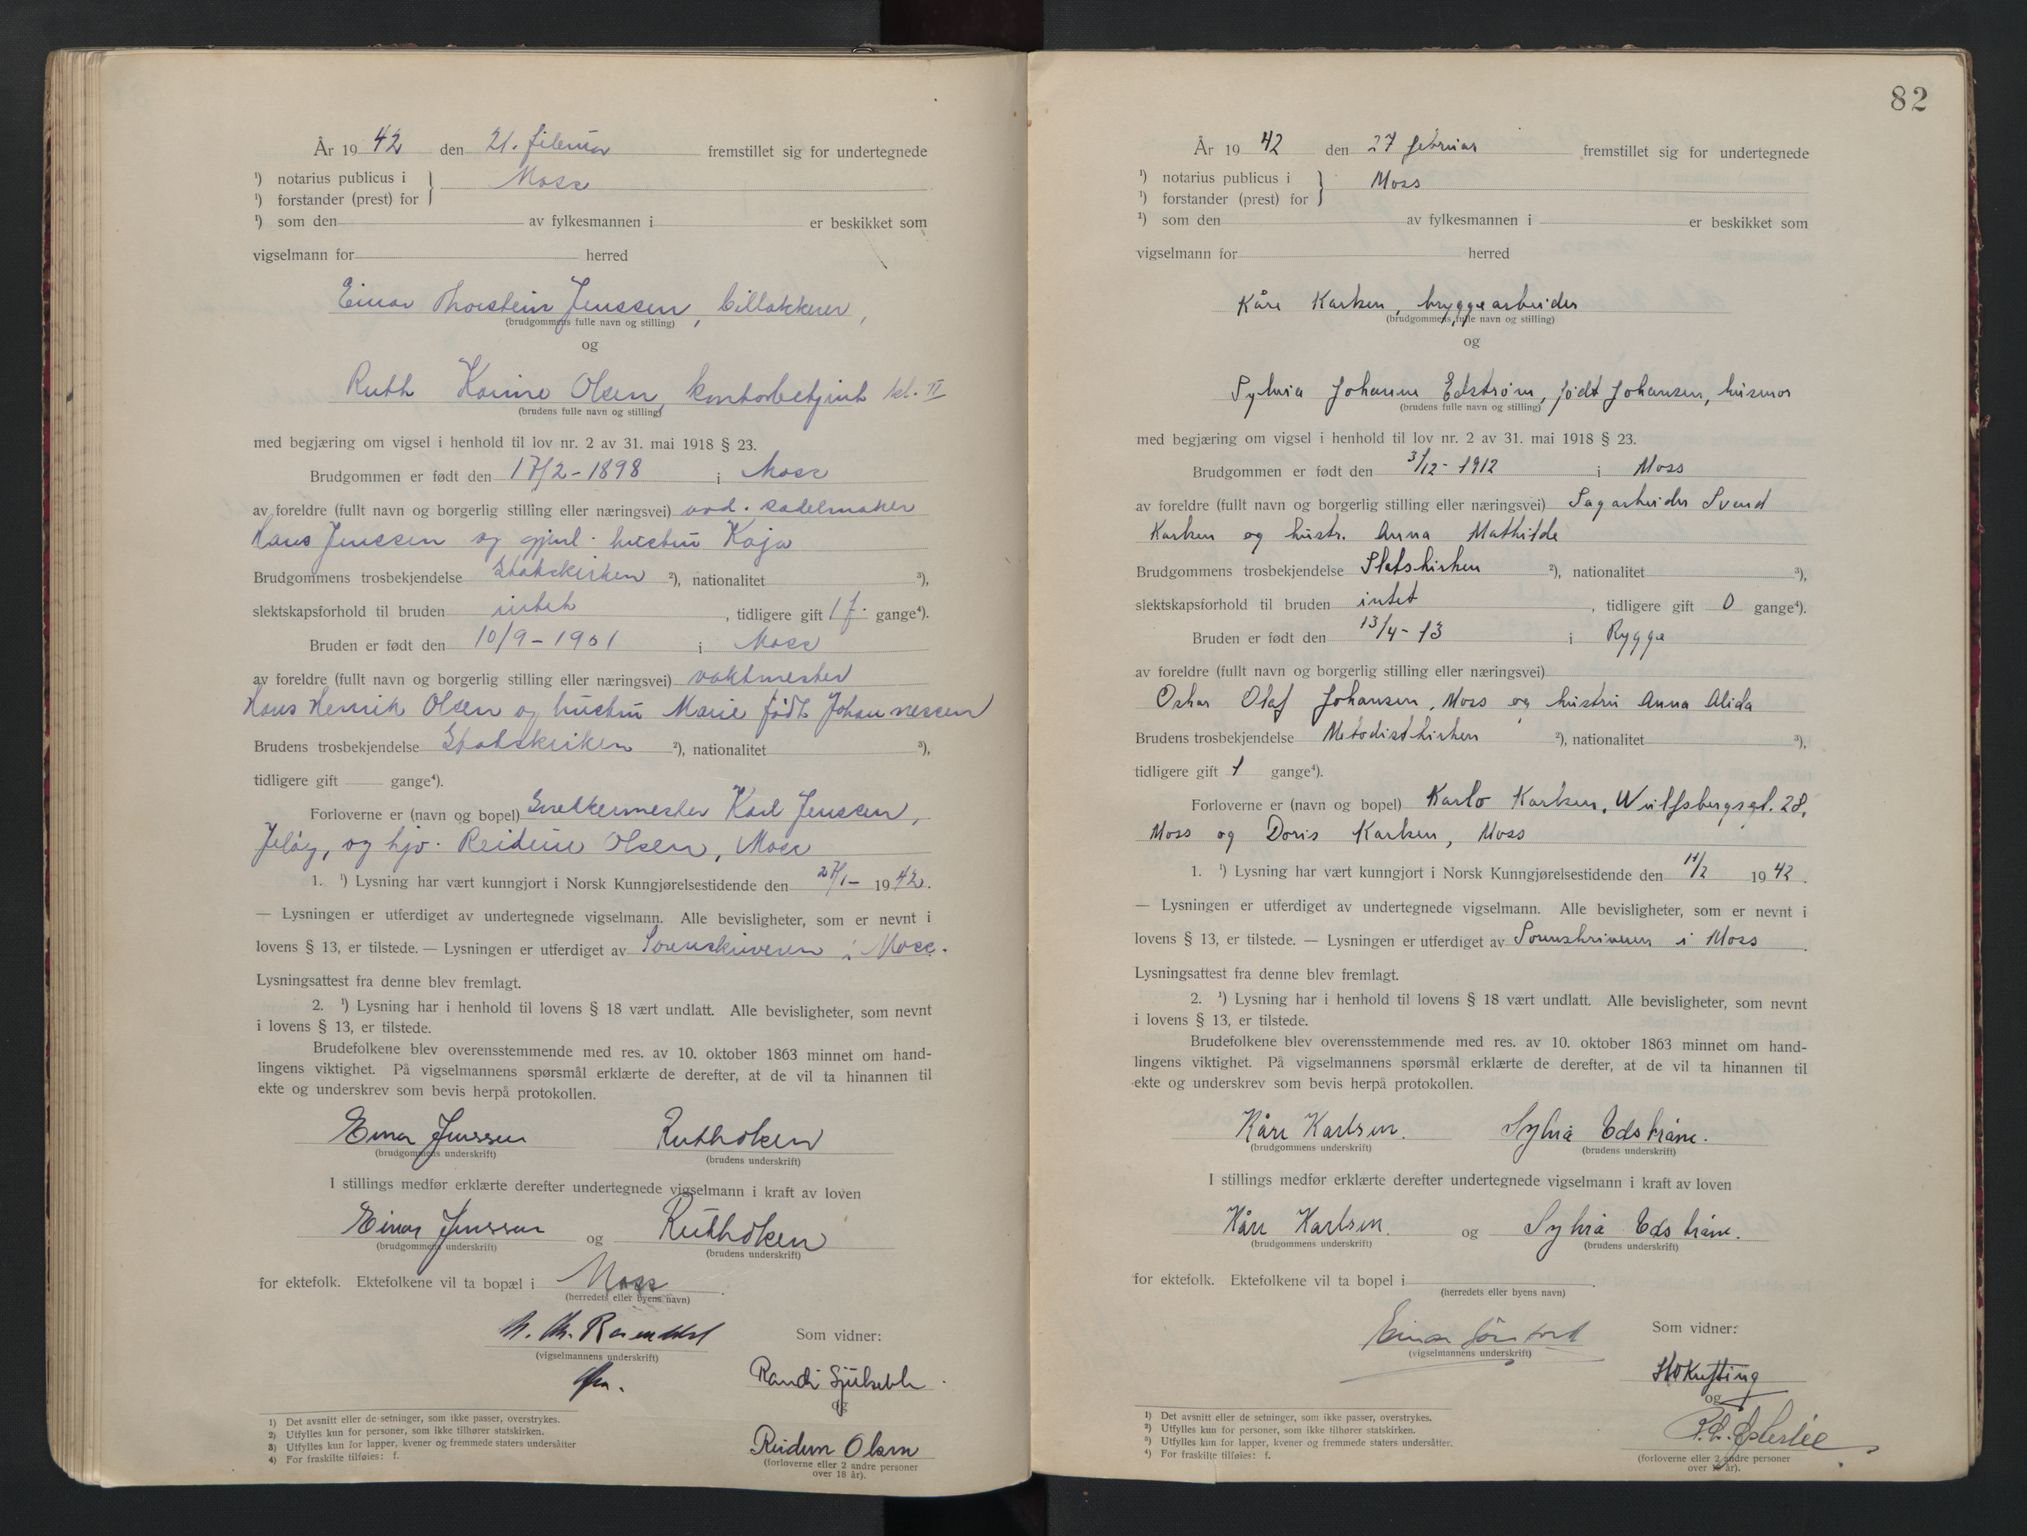 År 1942 den 21. februar fremstillet sig for undertegnede
¹) notarius publicus i } Moss
¹) forstander (prest) for
¹) som den av fylkesmannen i er beskikket som
vigselmann for herred
Einar Thorstein Jenssen, billakkerer,
(brudgommens fulle navn og stilling)
og
Ruth Karine Olsen, kontorbetjent kl. II
(brudens fulle navn og stilling)
med begjæring om vigsel i henhold til lov nr. 2 av 31. mai 1918 § 23.
Brudgommen er født den 17/2 - 1898 i Moss
av foreldre (fullt navn og borgerlig stilling eller næringsvei) avd. sadelmaker
Hans Jenssen og gjenl. hustru Kaja
Brudgommens trosbekjendelse Statskirken ²), nationalitet ³),
slektskapsforhold til bruden intet, tidligere gift 1 f. gange⁴).
Bruden er født den 10/9 - 1901 i Moss
av foreldre (fullt navn og borgerlig stilling eller næringsvei) vaktmester
Hans Henrik Olsen og hustru Marie født Johannessen
Brudens trosbekjendelse Statskirken ²), nationalitet ³),
tidligere gift gange⁴).
Forloverne er (navn og bopel) Karl Jenssen,
Jeløy, og hjv. Reidun Olsen, Moss
1. ¹) Lysning har vært kunngjort i Norsk Kunngjørelsestidende den 27/1 - 1942.
— Lysningen er utferdiget av undertegnede vigselmann. Alle bevisligheter, som er nevnt i
lovens § 13, er tilstede. — Lysningen er utferdiget av Sorenskriveren i Moss.
Lysningsattest fra denne blev fremlagt.
2. ¹) Lysning har i henhold til lovens § 18 vært undlatt. Alle bevisligheter, som nevnt
i lovens § 13, er tilstede.
Brudefolkene blev overensstemmende med res. av 10. oktober 1863 minnet om hand-
lingens viktighet. På vigselmannens spørsmål erklærte de derefter, at de vil ta hinannen til
ekte og underskrev som bevis herpå protokollen.
Einar Jenssen Ruth Olsen
(brudgommens underskrift) (brudens underskrift)
I stillings medfør erklærte derefter undertegnede vigselmann i kraft av loven
Einar Jenssen og Ruth Olsen
(brudgommens underskrift) (brudens underskrift)
for ektefolk. Ektefolkene vil ta bopæl i Moss.
(herredets eller byens navn)
Som vidner:
(vigselmannens underskrift)
Randi
og
Reidun Olsen
(forloverne eller 2 andre personer
over 18 år).
1) Det avsnitt eller de setninger, som ikke passer, overstrykes.
2) Utfylles kun for personer, som ikke tilhører statskirken.
3) Utfylles kun for lapper, kvener og fremmede staters undersåtter
4) For fraskilte tilføies: f.
82
År 1942 den 27 februar fremstillet sig for undertegnede
¹) notarius publicus i } Moss
¹) forstander (prest) for
¹) som den av fylkesmannen i er beskikket som
vigselmann for herred
Kåre Karlsen, bryggearbeider
(brudgommens fulle navn og stilling)
og
Sylvia Johanne Edstrøm, født Johansen, husmor
(brudens fulle navn og stilling)
med begjæring om vigsel i henhold til lov nr. 2 av 31. mai 1918 § 23.
Brudgommen er født den 3/12 - 1912 i Moss
av foreldre (fullt navn og borgerlig stilling eller næringsvei) Sagarbeider Svend
Karlsen og hustr. Anna Mathilde
Brudgommens trosbekjendelse Statskirken ²), nationalitet ³),
slektskapsforhold til bruden intet, tidligere gift 0 gange⁴).
Bruden er født den 13/4 - 13 i Rygge
av foreldre (fullt navn og borgerlig stilling eller næringsvei)
Oskar Olaf Johansen, Moss og hustru Anna Alida
Brudens trosbekjendelse Metodistkirken ²), nationalitet ³),
tidligere gift 1 gange⁴).
Forloverne er (navn og bopel) Karlo Karlsen, Wulfsbergsgt. 28,
Moss og Doris Karlsen, Moss
1. ¹) Lysning har vært kunngjort i Norsk Kunngjørelsestidende den 11/2 1942.
— Lysningen er utferdiget av undertegnede vigselmann. Alle bevisligheter, som er nevnt i
lovens § 13, er tilstede. — Lysningen er utferdiget av Sorenskriveren i Moss.
Lysningsattest fra denne blev fremlagt.
2. ¹) Lysning har i henhold til lovens § 18 vært undlatt. Alle bevisligheter, som nevnt
i lovens § 13, er tilstede.
Brudefolkene blev overensstemmende med res. av 10. oktober 1863 minnet om hand-
lingens viktighet. På vigselmannens spørsmål erklærte de derefter, at de vil ta hinannen til
ekte og underskrev som bevis herpå protokollen.
Kåre Karlsen. Sylvia Edstrøm.
(brudgommens underskrift) (brudens underskrift)
I stillings medfør erklærte derefter undertegnede vigselmann i kraft av loven
Kåre Karlsen. og Sylvia Edstrøm.
(brudgommens underskrift) (brudens underskrift)
for ektefolk. Ektefolkene vil ta bopel i
(herredets eller byens navn)
Einar
Som vidner:
(vigselmannens underskrift)
og
(forloverne eller 2 andre personer
over 18 år).
1) Det avsnitt eller de setninger, som ikke passer, overstrykes.
2) Utfylles kun for personer, som ikke tilhører statskirken.
3) Utfylles kun for lapper, kvener og fremmede staters undersåtter.
4) For fraskilte tilføies: f.